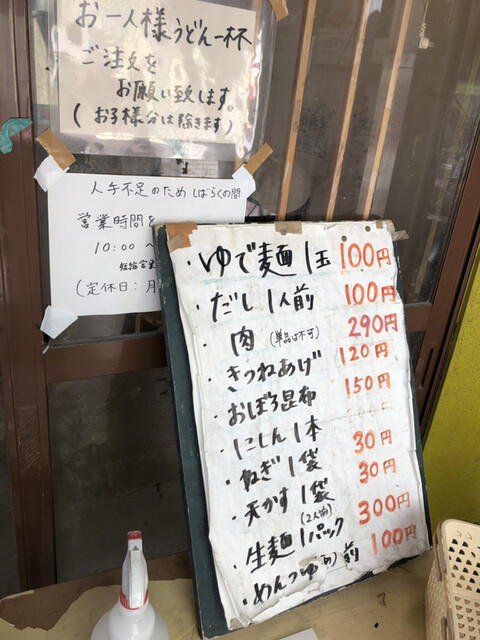 お一人様うどん一杯
ご注文を
お願い致します。
(お子様分は除きます)
人手不足のため しばらくの間
営業時間を
10:00 ～
短縮営業
(定休日：月
・ゆで麺 1玉 100円
・だし 1人前 100円
・肉 (単品は不可) 290円
・きつねあげ 120円
・おぼろ昆布 150円
・にしん 1本
・ねぎ 1袋 30円
・天かす 1袋 30円
(2人前)
・生麺 1パック 300円
・めんつゆ 前 100円